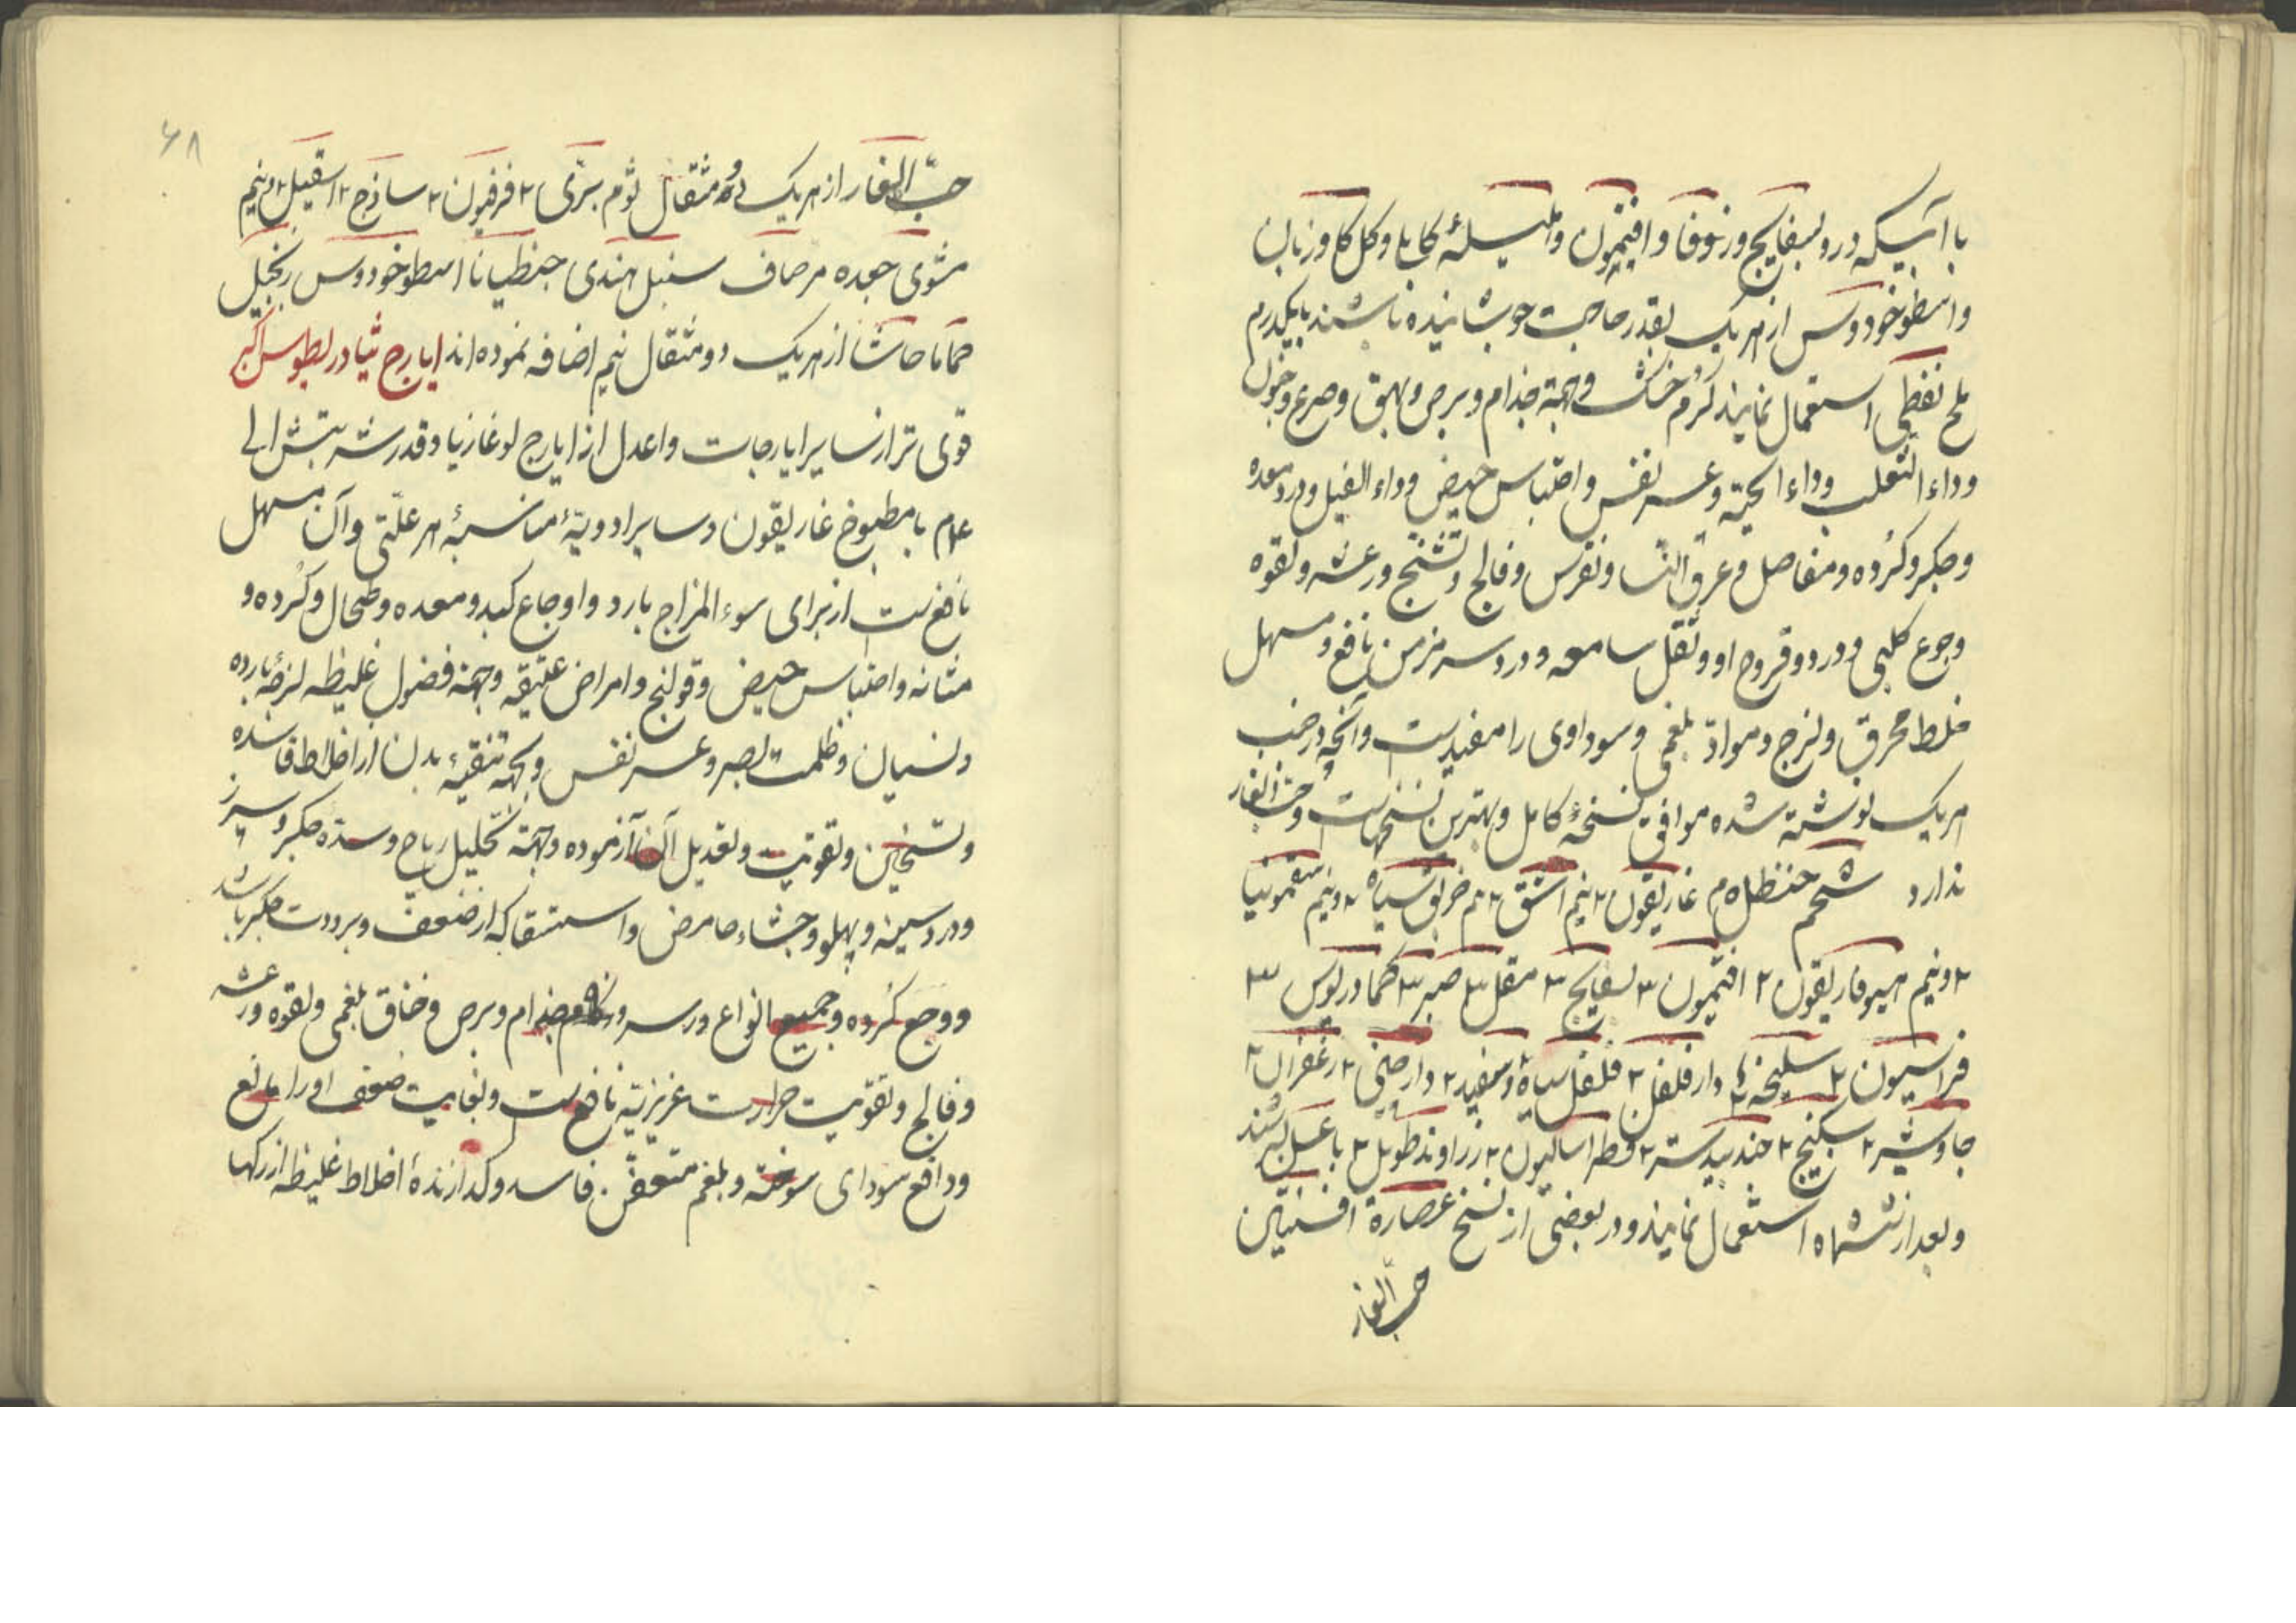 با آبیکه درو بسفایج و زنوفا و افتیمون و هلیلهٔ کابلی و کل کاوزبان
و اسطوخودوس از هریک بقدر حاجت جوشانیده باشند با یکدرم
ملح نفطی استعمال نمایند گرم و خشک و جهة جذام و برص و بهق و صرع و جنون
و داء الثعلب و داء الحیّة و عسر نفس و احتباس حیض و داء الفیل و درد معده
و جکر و کرده و مفاصل و عرق النسا و نقرس و فالج و تشنّج و رعشه و لقوه
و جوع کلبی و درد و قروح او و ثقل سامعه و درد سر مزمن نافع و مسهل
خلط محرق و لزج و موادّ بلغمی و سوداوی را مفیدست و آنچه در جنب
هریک نوشته شده موافق نسخهٔ کامل و بهترین نسخهاست و حبّ الغار
ندارد شحم حنظل ۵م غاریقون ۲ نیم اشق ۲ نیم خربق سیاه ۲ ونیم سقمونیا
۲ ونیم هیوفاریقون ۲ افتیمون ۳ بسفایج ۳ مقل ۳ صبر ۳ کمادریوس ۳
فراسیون ۳ سلیخه ۳ دارفلفل ۲ فلفل سیاه و سفید ۲ دارصینی ۲ زعفران ۲
جاوشیر ۲ سکبینج ۲ جندبیدستر ۲ فطراسالیون ۲ زراوند طویل ۲ با عسل بسرشند
و بعد از ششماه استعمال نمایند و در بعضی از نسخ عصارهٔ افسنتین
حبّ الغار
۶۸
حبّ الغار از هریک دو مثقال ثوم برّی ۲ فرفیون ۲ ساذج ۲ اسقیل ۲ ونیم
مشوی جعده مرصاف سنبل هندی جنطیانا اسطوخودوس زنجبیل
حماما حاشا از هریک دو مثقال نیم اضافه نموده‌اند ایارج ثیادریطوس اکبر
قوی تر از سایر ایارجات و اعدل از ایارج لوغازیا و قدر شربتش الی
۴م با مطبوخ غاریقون و سایر ادویهٔ مناسبهٔ هر علّتی و آن مسهل
نافع ست از برای سوء المزاج بارد و اوجاع کبد و معده و طحال و کرده و
مثانه و احتباس حیض و قولنج و امراض عتیقه و جهة فضول غلیظه لزجهٔ بارده
و نسیان و ظلمت بصر و عسر نفس و بجهة تنقیهٔ بدن از اخلاط فاسده
و تسخین و تقویت و تعدیل آن آزموده و جهة تحلیل ریاح و سدّه جکر و سپرز
و درد سینه و پهلو و جشاء حامض و استسقا که از ضعف و برودت جکر باشد
و وجع کرده و جمیع انواع درد سر و زکام و جذام و برص و خناق بلغمی و لقوه و رعشه
و فالج و تقویت حرارت غریزیّه نافع ست و بغایت ضعف او را مانع
و دافع سودای سوخته و بلغم متعفّن فاسد و کدازندهٔ اخلاط غلیظه از رکها